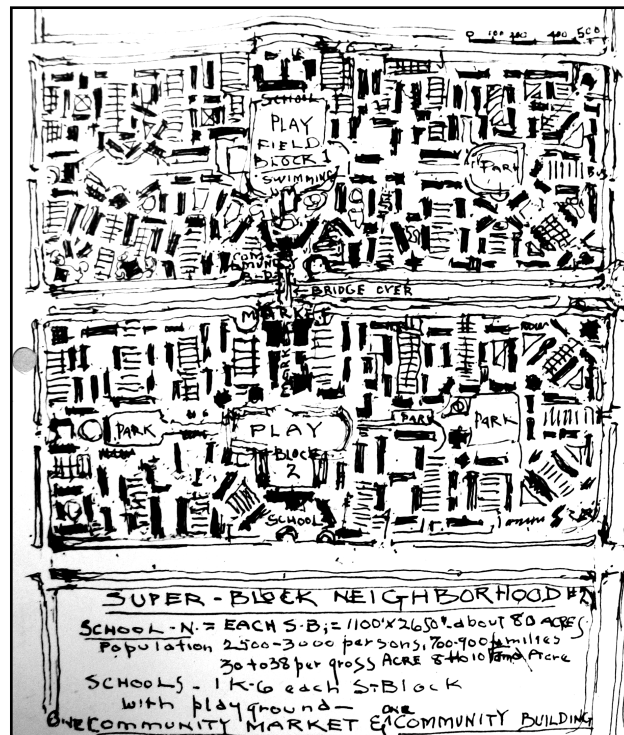 0 100 200 400 500
SCHOOL
PLAY
FIELD
BLOCK 1
SWIMMING
PARK
COM
MUNITY
BLDG
BRIDGE OVER
MARKET
MARKET
PARK
PLAY
BLOCK
2
PARK
PARK
SCHOOL
SUPER-BLOCK NEIGHBORHOOD #2
SCHOOL-N. = EACH S-B; = 1100'X2650'. about 80 ACRES
Population 2500-3000 persons, 700-900 families
30 to 38 per gross ACRE 8 to 10 Acre
SCHOOLS - 1 K-6 each S-Block
with playground-
ONE COMMUNITY MARKET & ONE COMMUNITY BUILDING